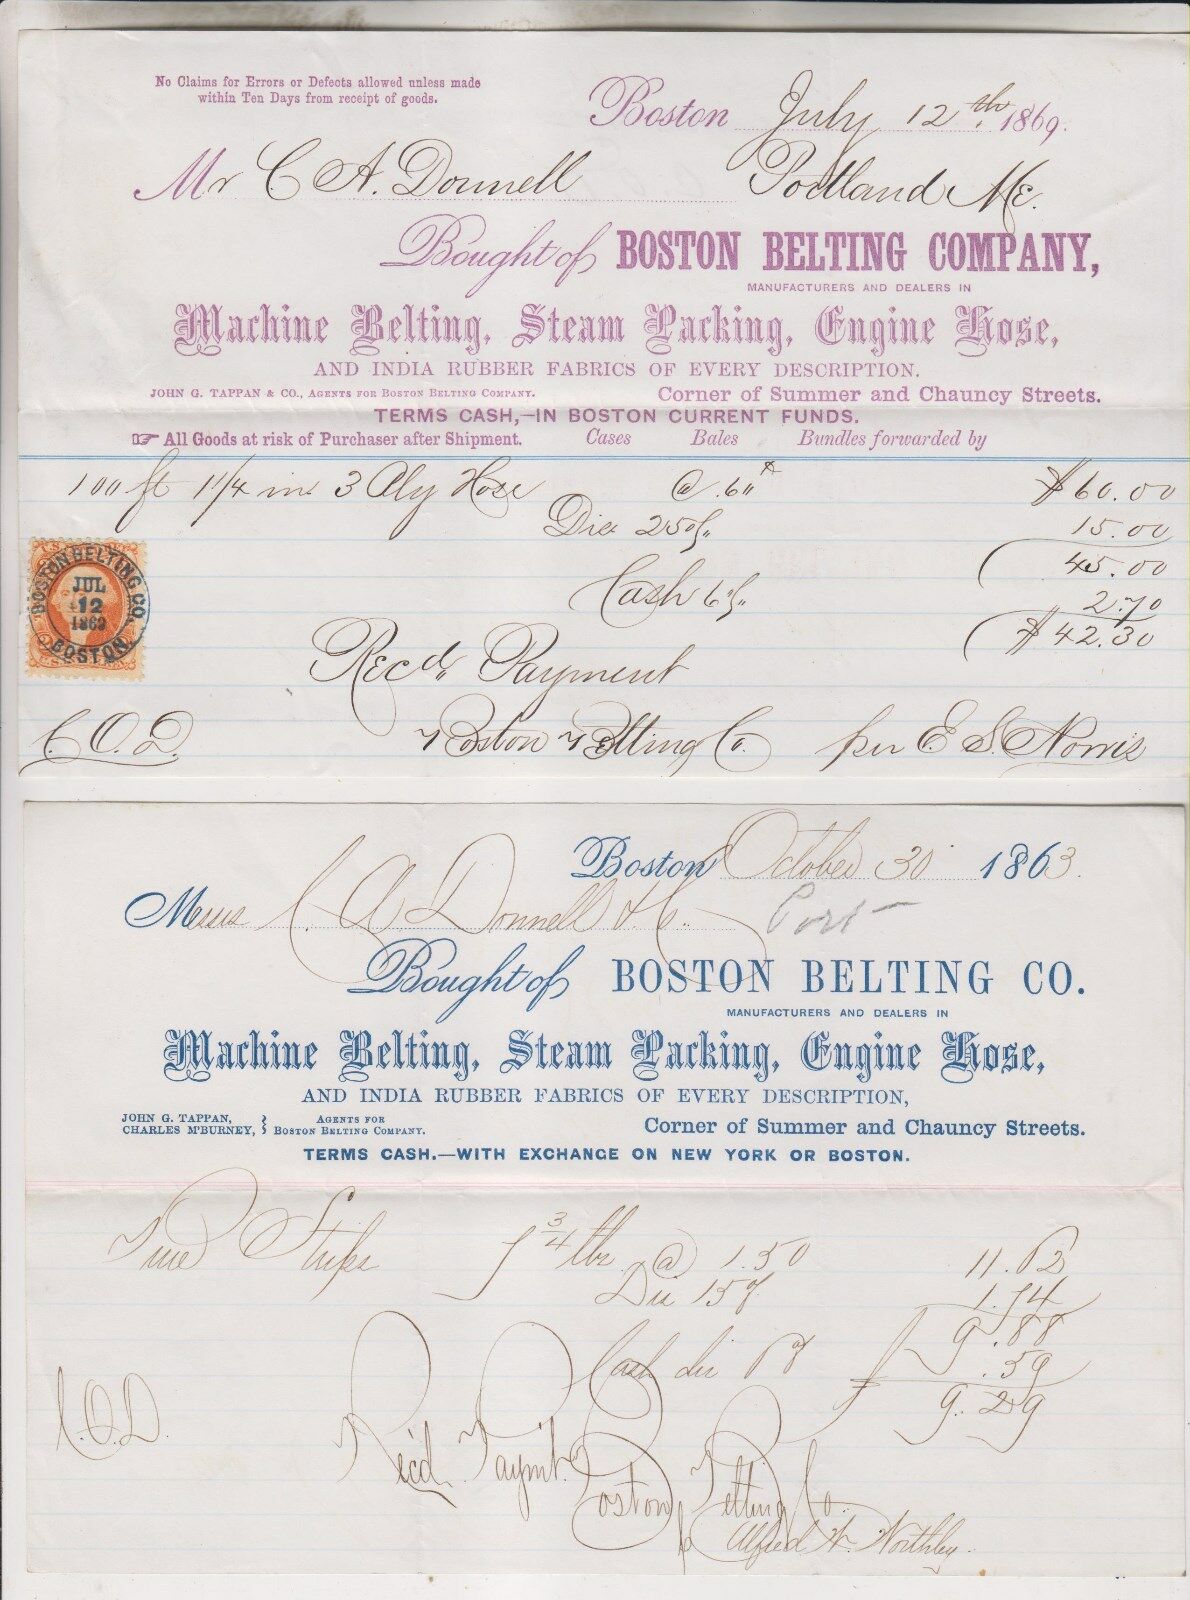 No Claims for Errors or Defects allowed unless made
within Ten Days from receipt of goods.
Boston July 12th 1869.
Mr C A. Donnell Portland Me.
Bought of BOSTON BELTING COMPANY,
MANUFACTURERS AND DEALERS IN
Machine Belting, Steam Packing, Engine Hose,
AND INDIA RUBBER FABRICS OF EVERY DESCRIPTION.
JOHN G. TAPPAN & CO., AGENTS FOR BOSTON BELTING COMPANY. Corner of Summer and Chauncy Streets.
TERMS CASH,—IN BOSTON CURRENT FUNDS.
☞ All Goods at risk of Purchaser after Shipment. Cases Bales Bundles forwarded by
100 ft 1 1/4 in 3 Ply Hose @ .60 $60.00
Dis 25% 15.00
45.00
Cash 6% 2.70
$42.30
BOSTON BELTING CO.
JUL
12
1869
BOSTON
Recd Payment
C.O.D. Boston Belting Co. per E. S. Norris
Boston October 30 1863.
Messrs C A Donnell & Co. Port
Bought of BOSTON BELTING CO.
MANUFACTURERS AND DEALERS IN
Machine Belting, Steam Packing, Engine Hose,
AND INDIA RUBBER FABRICS OF EVERY DESCRIPTION,
JOHN G. TAPPAN, CHARLES M'BURNEY, } AGENTS FOR BOSTON BELTING COMPANY. Corner of Summer and Chauncy Streets.
TERMS CASH.—WITH EXCHANGE ON NEW YORK OR BOSTON.
Strips 7 3/4 lbs @ 1.50 11.62
Dis 15% 1.74
9.88
Cash dis 6% .59
9.29
C.O.D. Rec'd Paymt.
Boston Belting Co.
Alfred W. Northley